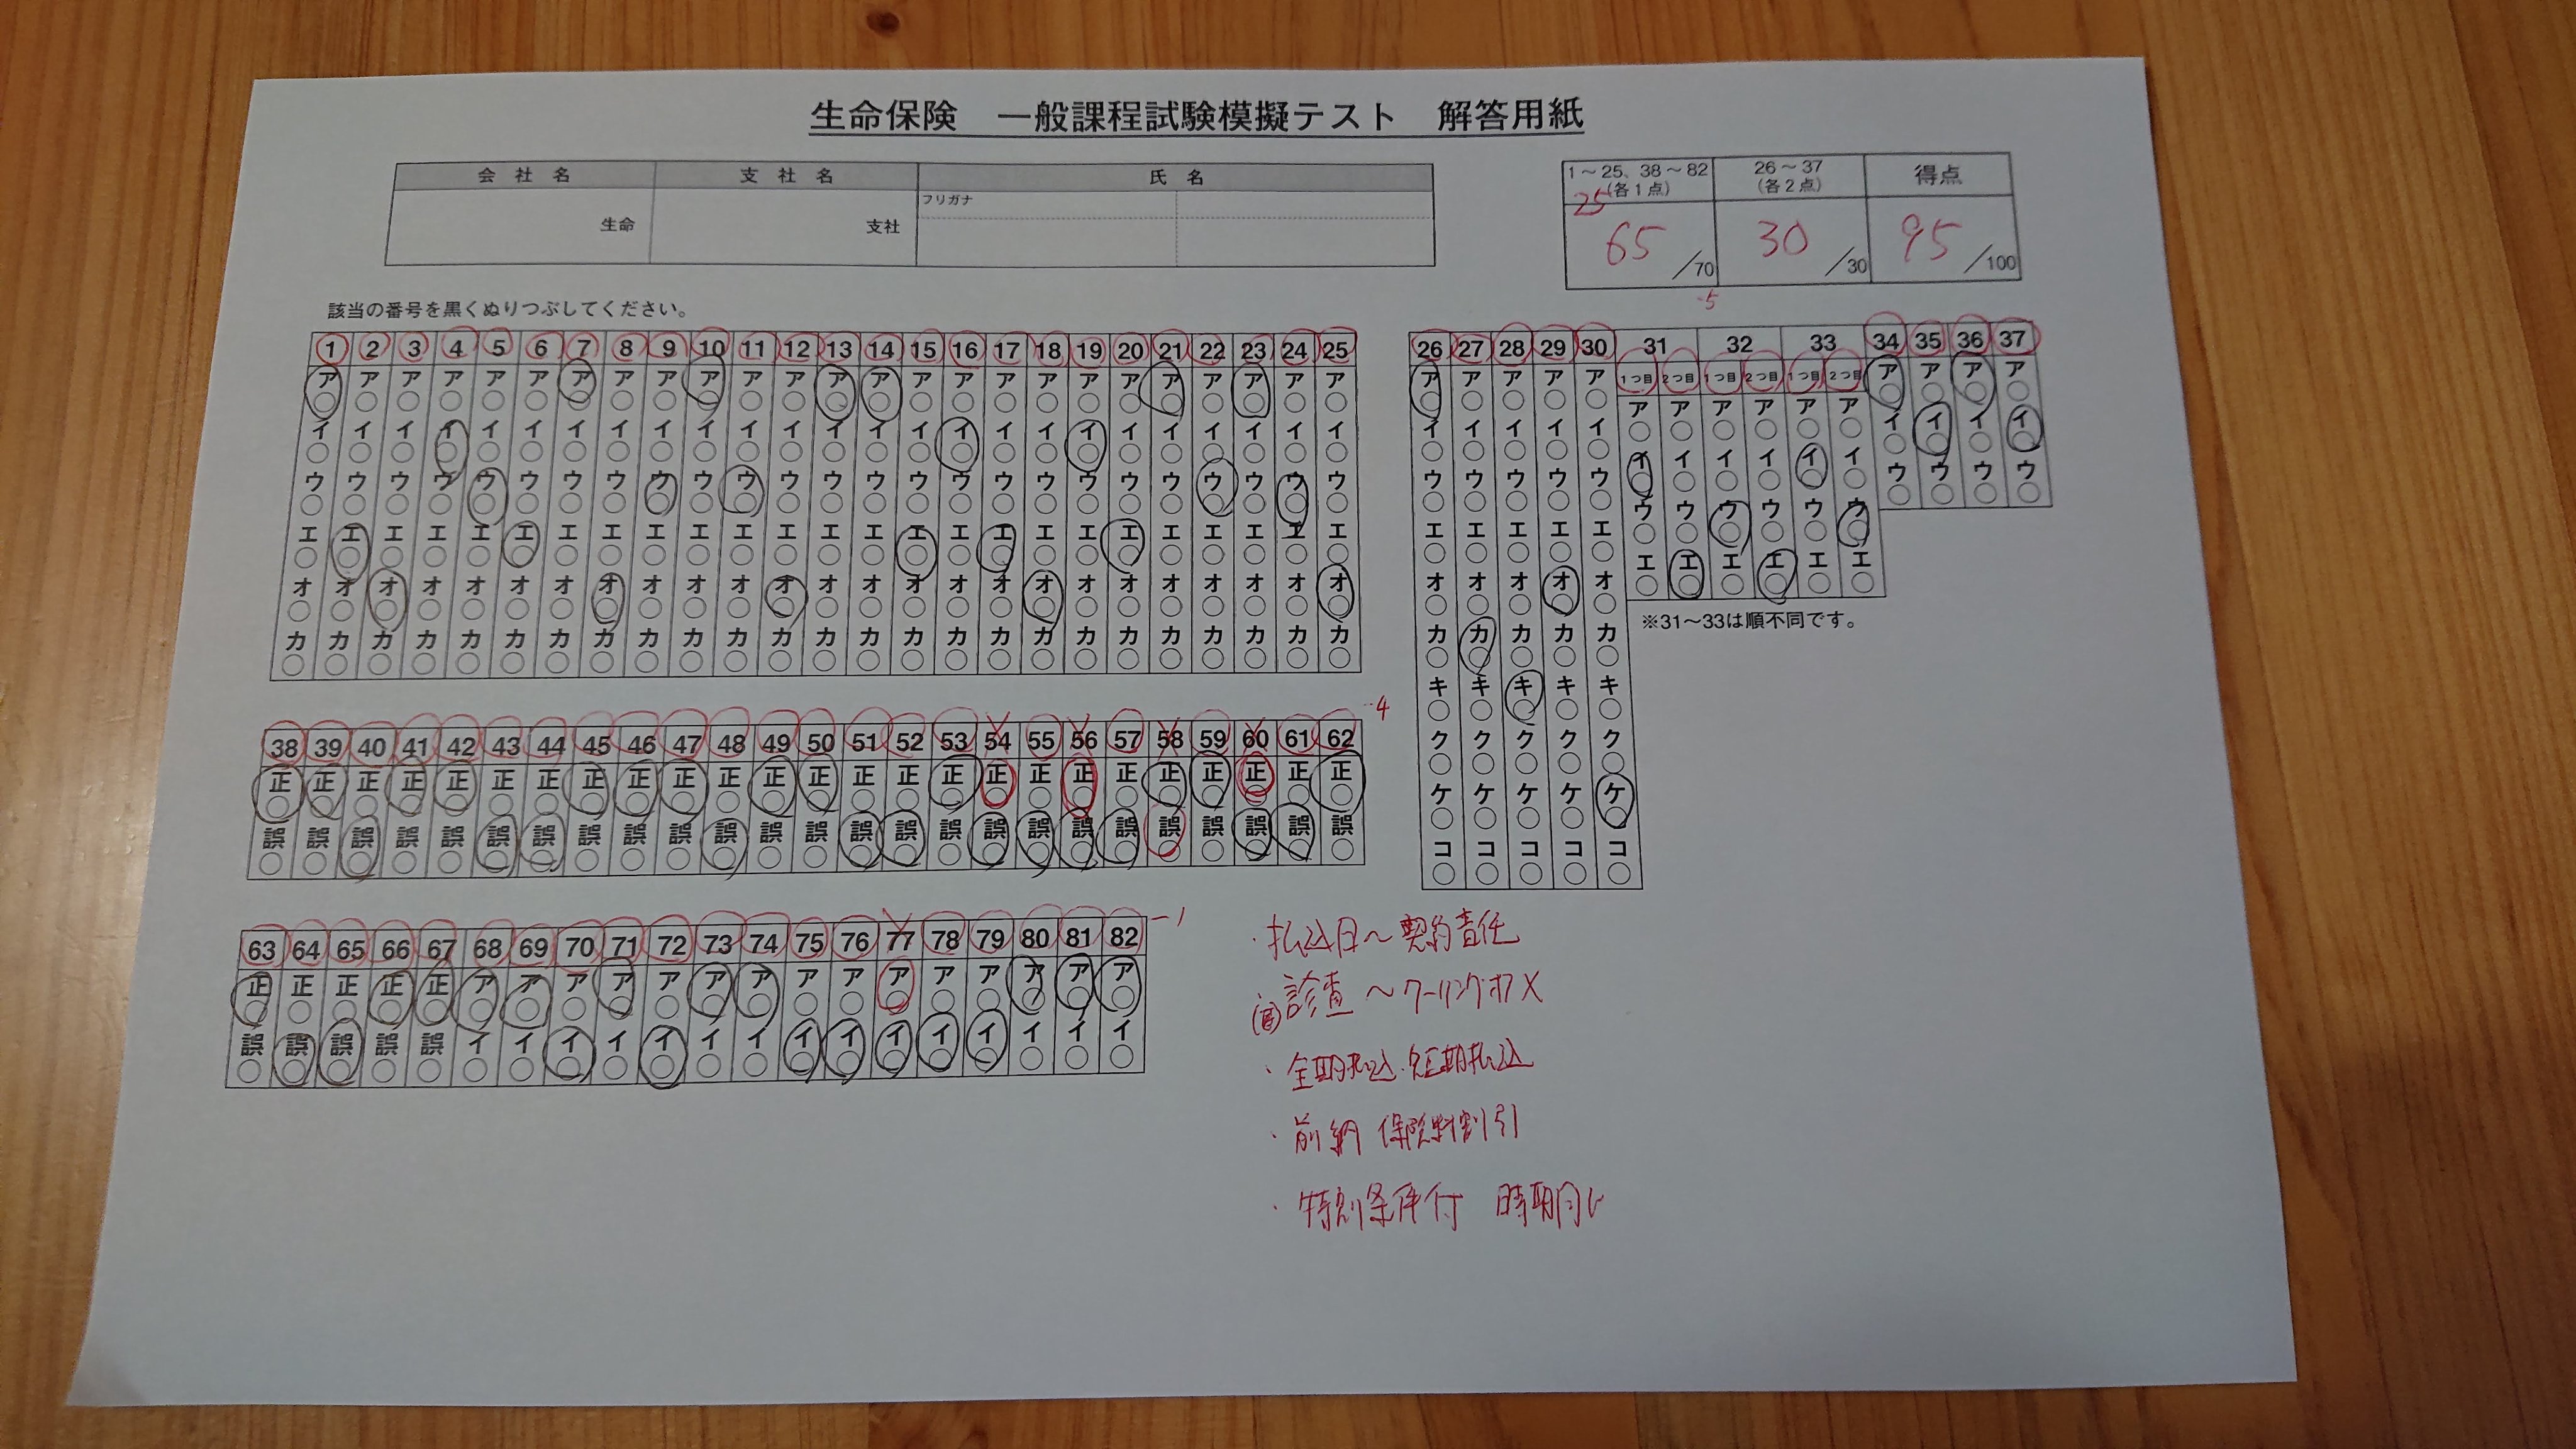 生命保険　一般課程試験模擬テスト　解答用紙
会 社 名 支 社 名 氏 名
フリガナ
生命 支社
1～25、38～82 (各1点) 26～37 (各2点) 得点
25
65 /70 30 /30 95 /100
-5
該当の番号を黒くぬりつぶしてください。
1 2 3 4 5 6 7 8 9 10 11 12 13 14 15 16 17 18 19 20 21 22 23 24 25
ア ア ア ア ア ア ア ア ア ア ア ア ア ア ア ア ア ア ア ア ア ア ア ア ア
イ イ イ イ イ イ イ イ イ イ イ イ イ イ イ イ イ イ イ イ イ イ イ イ イ
ウ ウ ウ ウ ウ ウ ウ ウ ウ ウ ウ ウ ウ ウ ウ ウ ウ ウ ウ ウ ウ ウ ウ ウ ウ
エ エ エ エ エ エ エ エ エ エ エ エ エ エ エ エ エ エ エ エ エ エ エ エ エ
オ オ オ オ オ オ オ オ オ オ オ オ オ オ オ オ オ オ オ オ オ オ オ オ オ
カ カ カ カ カ カ カ カ カ カ カ カ カ カ カ カ カ カ カ カ カ カ カ カ カ
26 27 28 29 30 31 32 33 34 35 36 37
1つ目 2つ目 1つ目 2つ目 1つ目 2つ目
ア ア ア ア ア ア ア ア ア ア ア ア ア ア ア
イ イ イ イ イ イ イ イ イ イ イ イ イ イ イ
ウ ウ ウ ウ ウ ウ ウ ウ ウ ウ ウ ウ ウ ウ ウ
エ エ エ エ エ エ エ エ エ エ エ
オ オ オ オ オ
カ カ カ カ カ
キ キ キ キ キ
ク ク ク ク ク
ケ ケ ケ ケ ケ
コ コ コ コ コ
※31～33は順不同です。
-4
38 39 40 41 42 43 44 45 46 47 48 49 50 51 52 53 54 55 56 57 58 59 60 61 62
正 正 正 正 正 正 正 正 正 正 正 正 正 正 正 正 正 正 正 正 正 正 正 正 正
誤 誤 誤 誤 誤 誤 誤 誤 誤 誤 誤 誤 誤 誤 誤 誤 誤 誤 誤 誤 誤 誤 誤 誤 誤
-1
63 64 65 66 67 68 69 70 71 72 73 74 75 76 77 78 79 80 81 82
正 正 正 正 正 ア ア ア ア ア ア ア ア ア ア ア ア ア ア ア
誤 誤 誤 誤 誤 イ イ イ イ イ イ イ イ イ イ イ イ イ イ イ
・払込日～契約責任
診査～クーリングオフ×
・全期払込・短期払込
・前納 保険料割引
・特別条件付 時期同じ